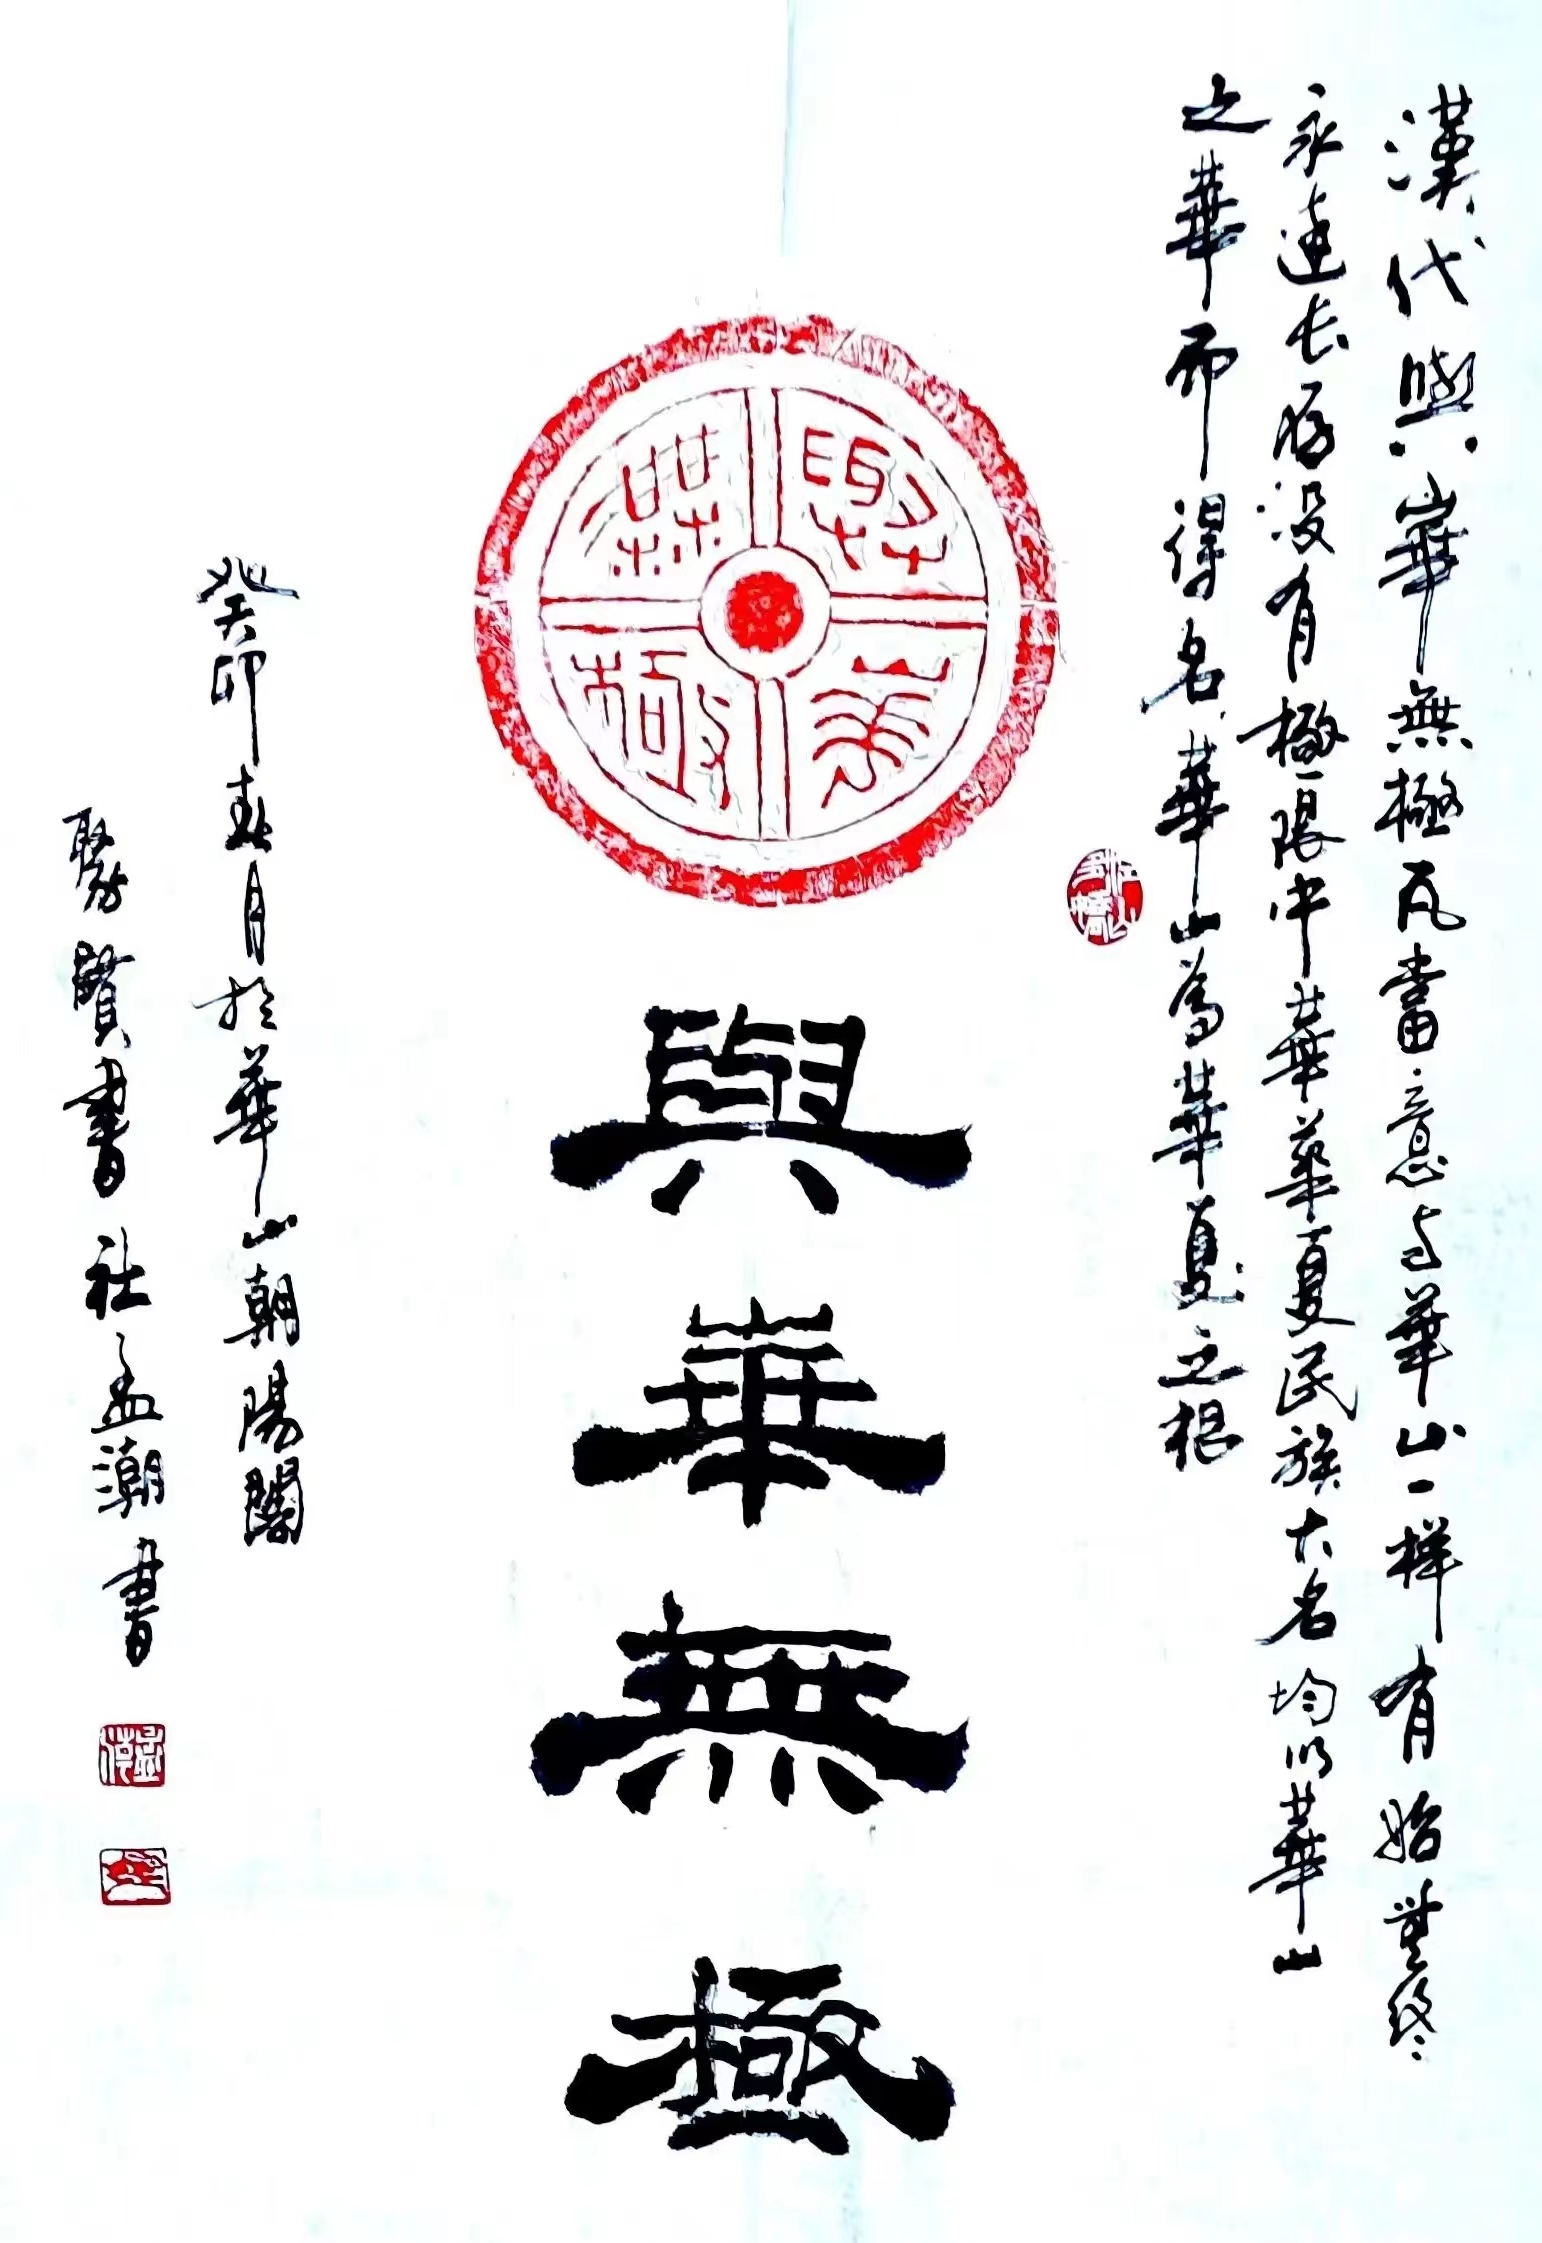 漢代與崋無極瓦當意与華山一樣有始無終
永遠长存没有極限中華華夏民族大名均以華山
之華而得名華山為華夏之根
與崋無極
與崋無極
癸卯春月於華山朝陽閣
聚賢書社孟潮書
孟潮